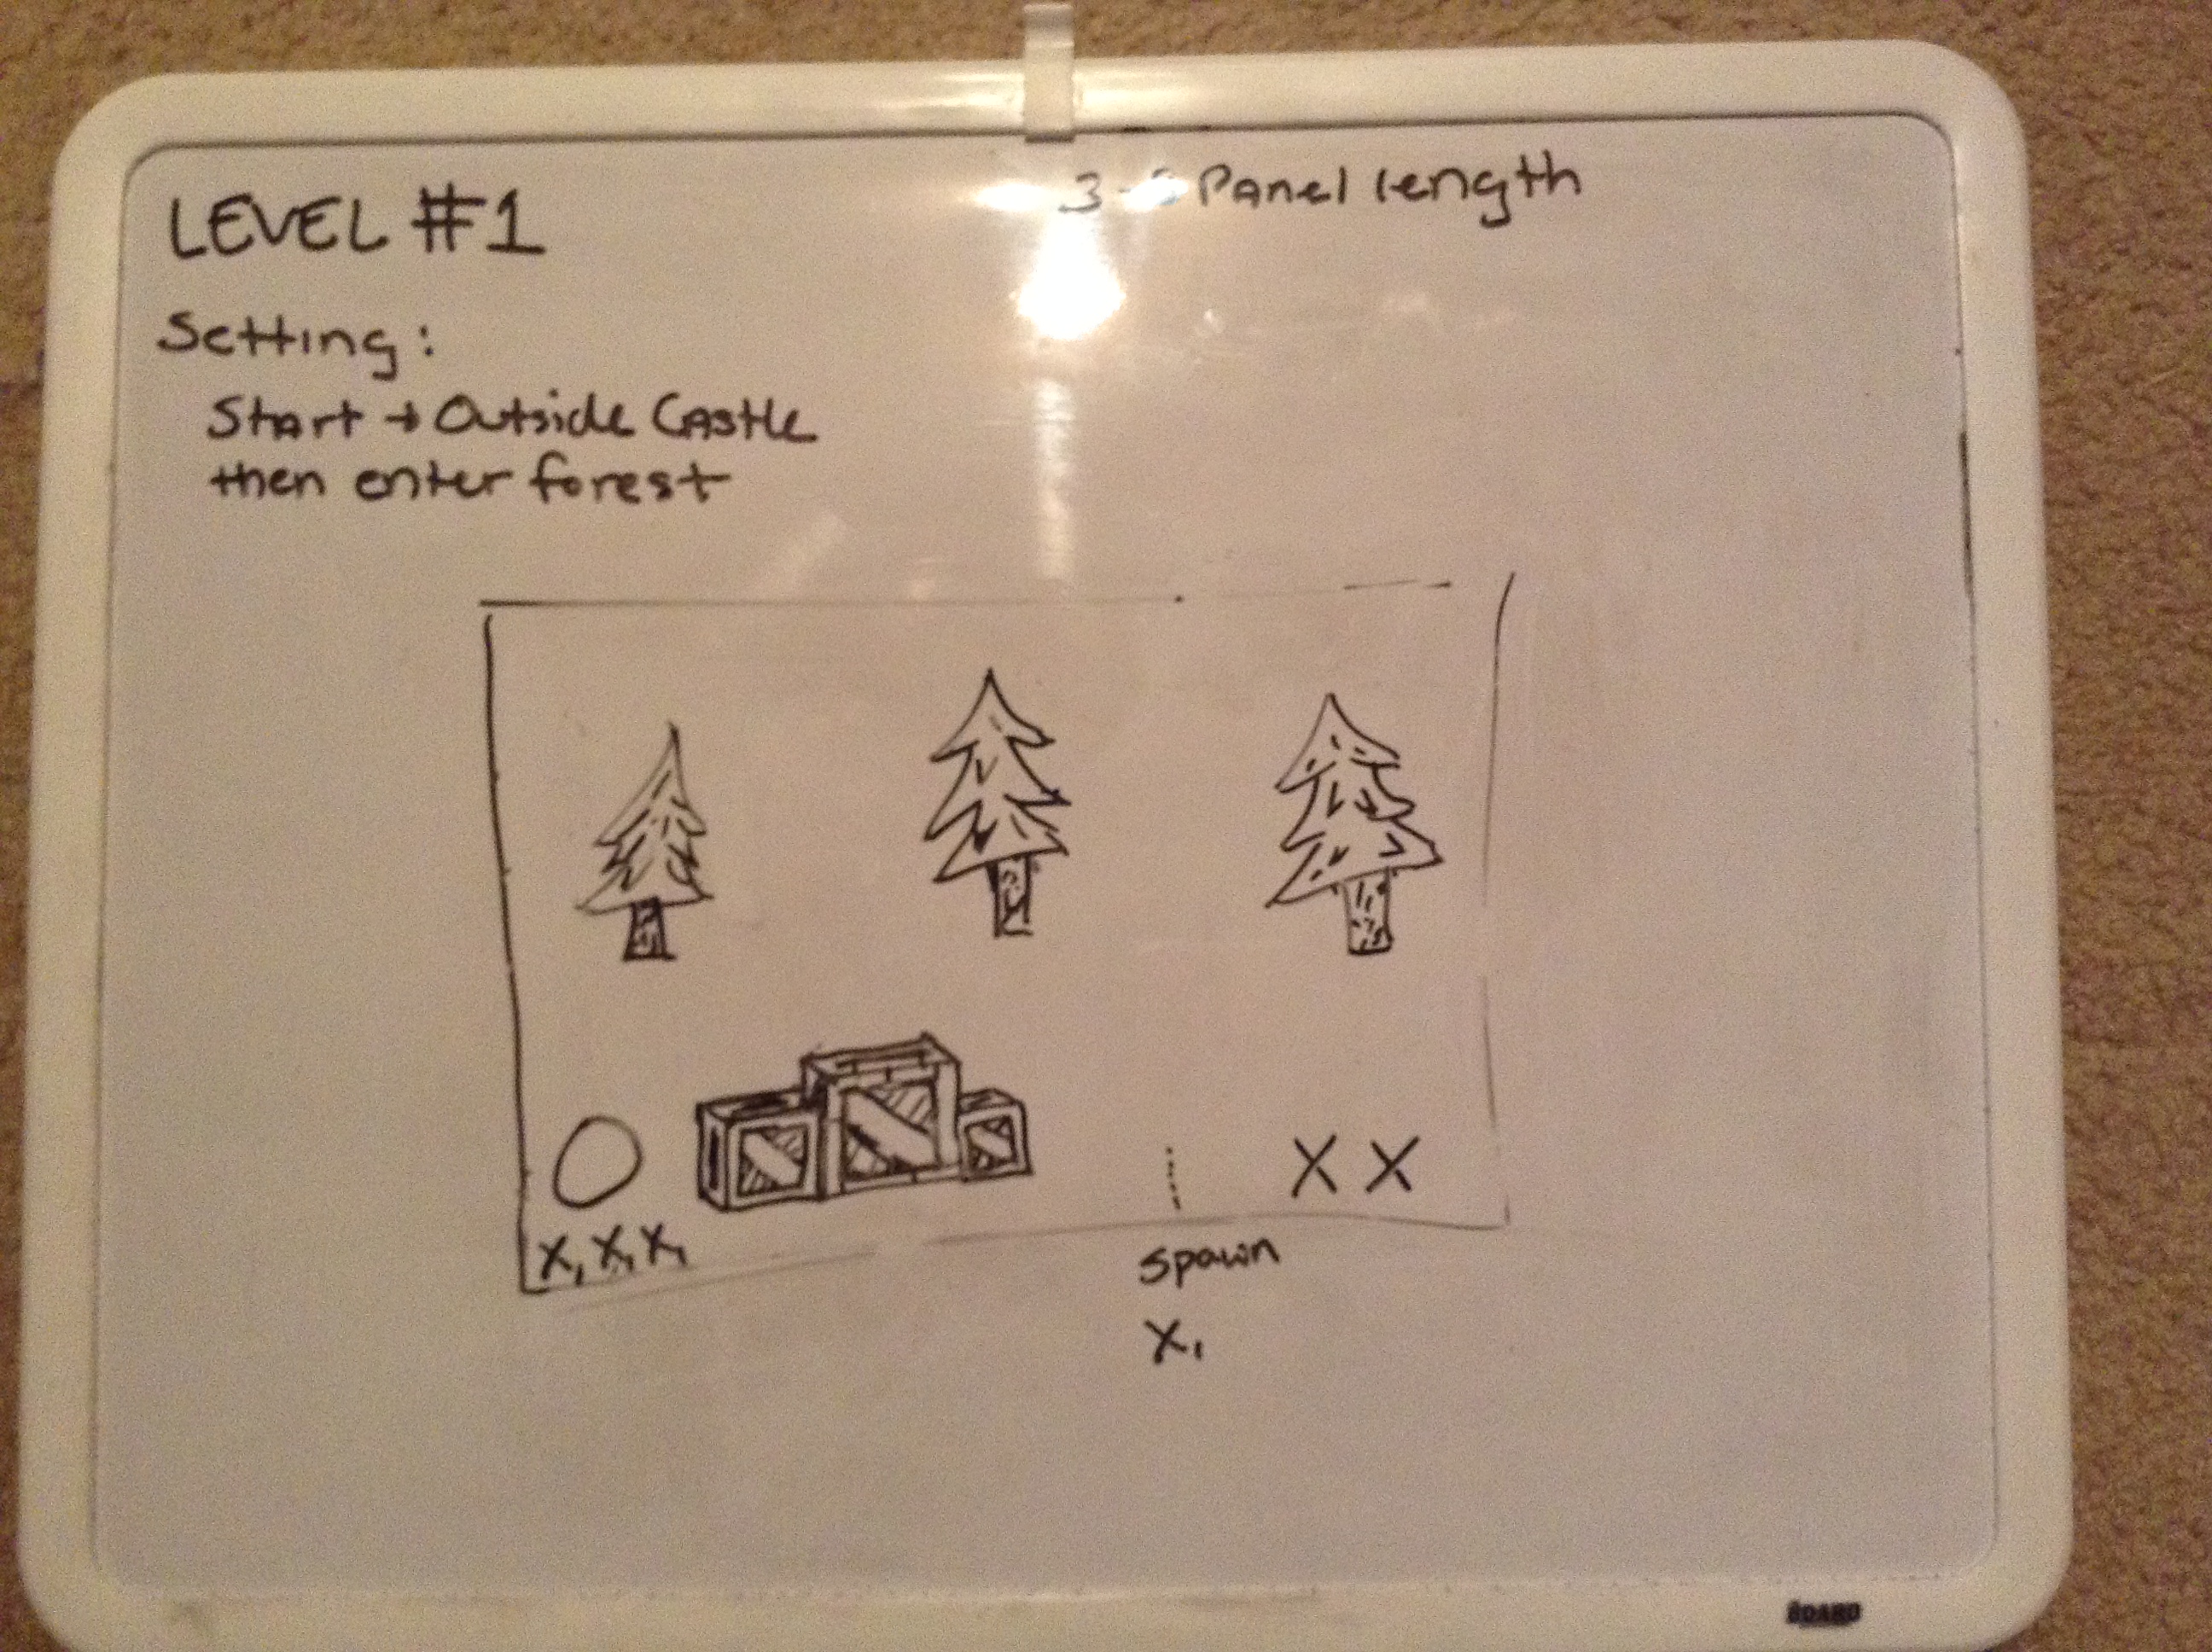 LEVEL #1
3-5 Panel length
Setting:
Start → Outside Castle
then enter forest
X X
X₁ X₁ X₁
Spawn
X₁
BOARD